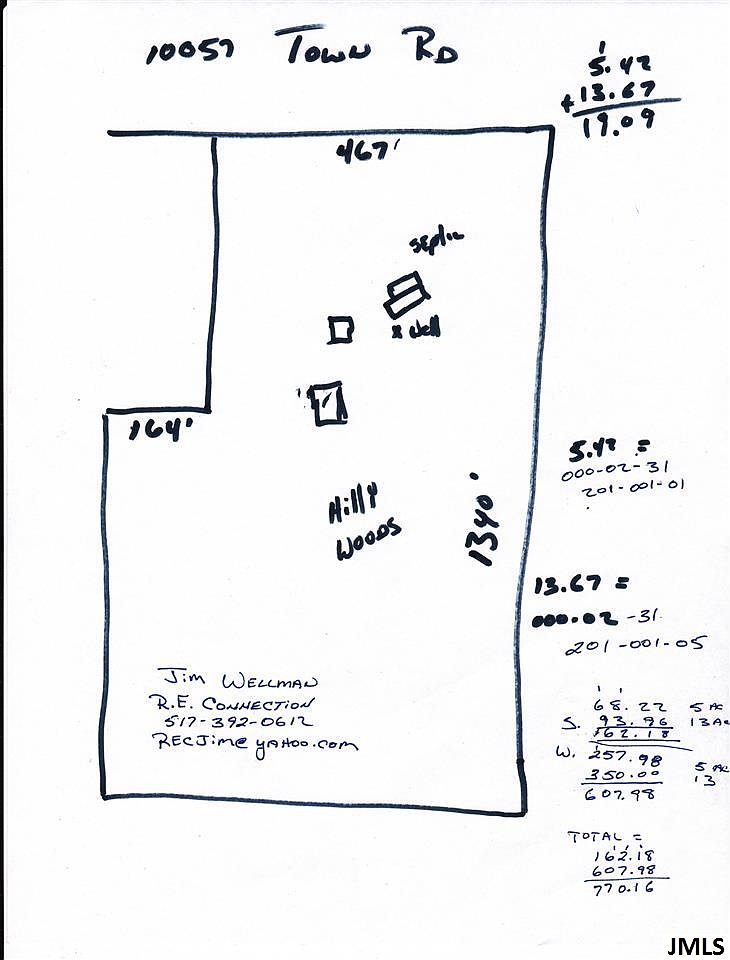 10057 TOWN RD
5.42
+13.67
19.09
467'
SEPTIC
x Well
164'
Hilly
WOODS
1340'
5.42 =
000-02-31
201-001-01
13.67 =
000-02-31
201-001-05
JIM WELLMAN
R.E. CONNECTION
517-392-0612
RECJIM@YAHOO.COM
68.22 5 AC
S. 93.96 13 AC
162.18
W. 257.98 5 AC
350.00 13
607.98
TOTAL =
162.18
607.98
770.16
JMLS